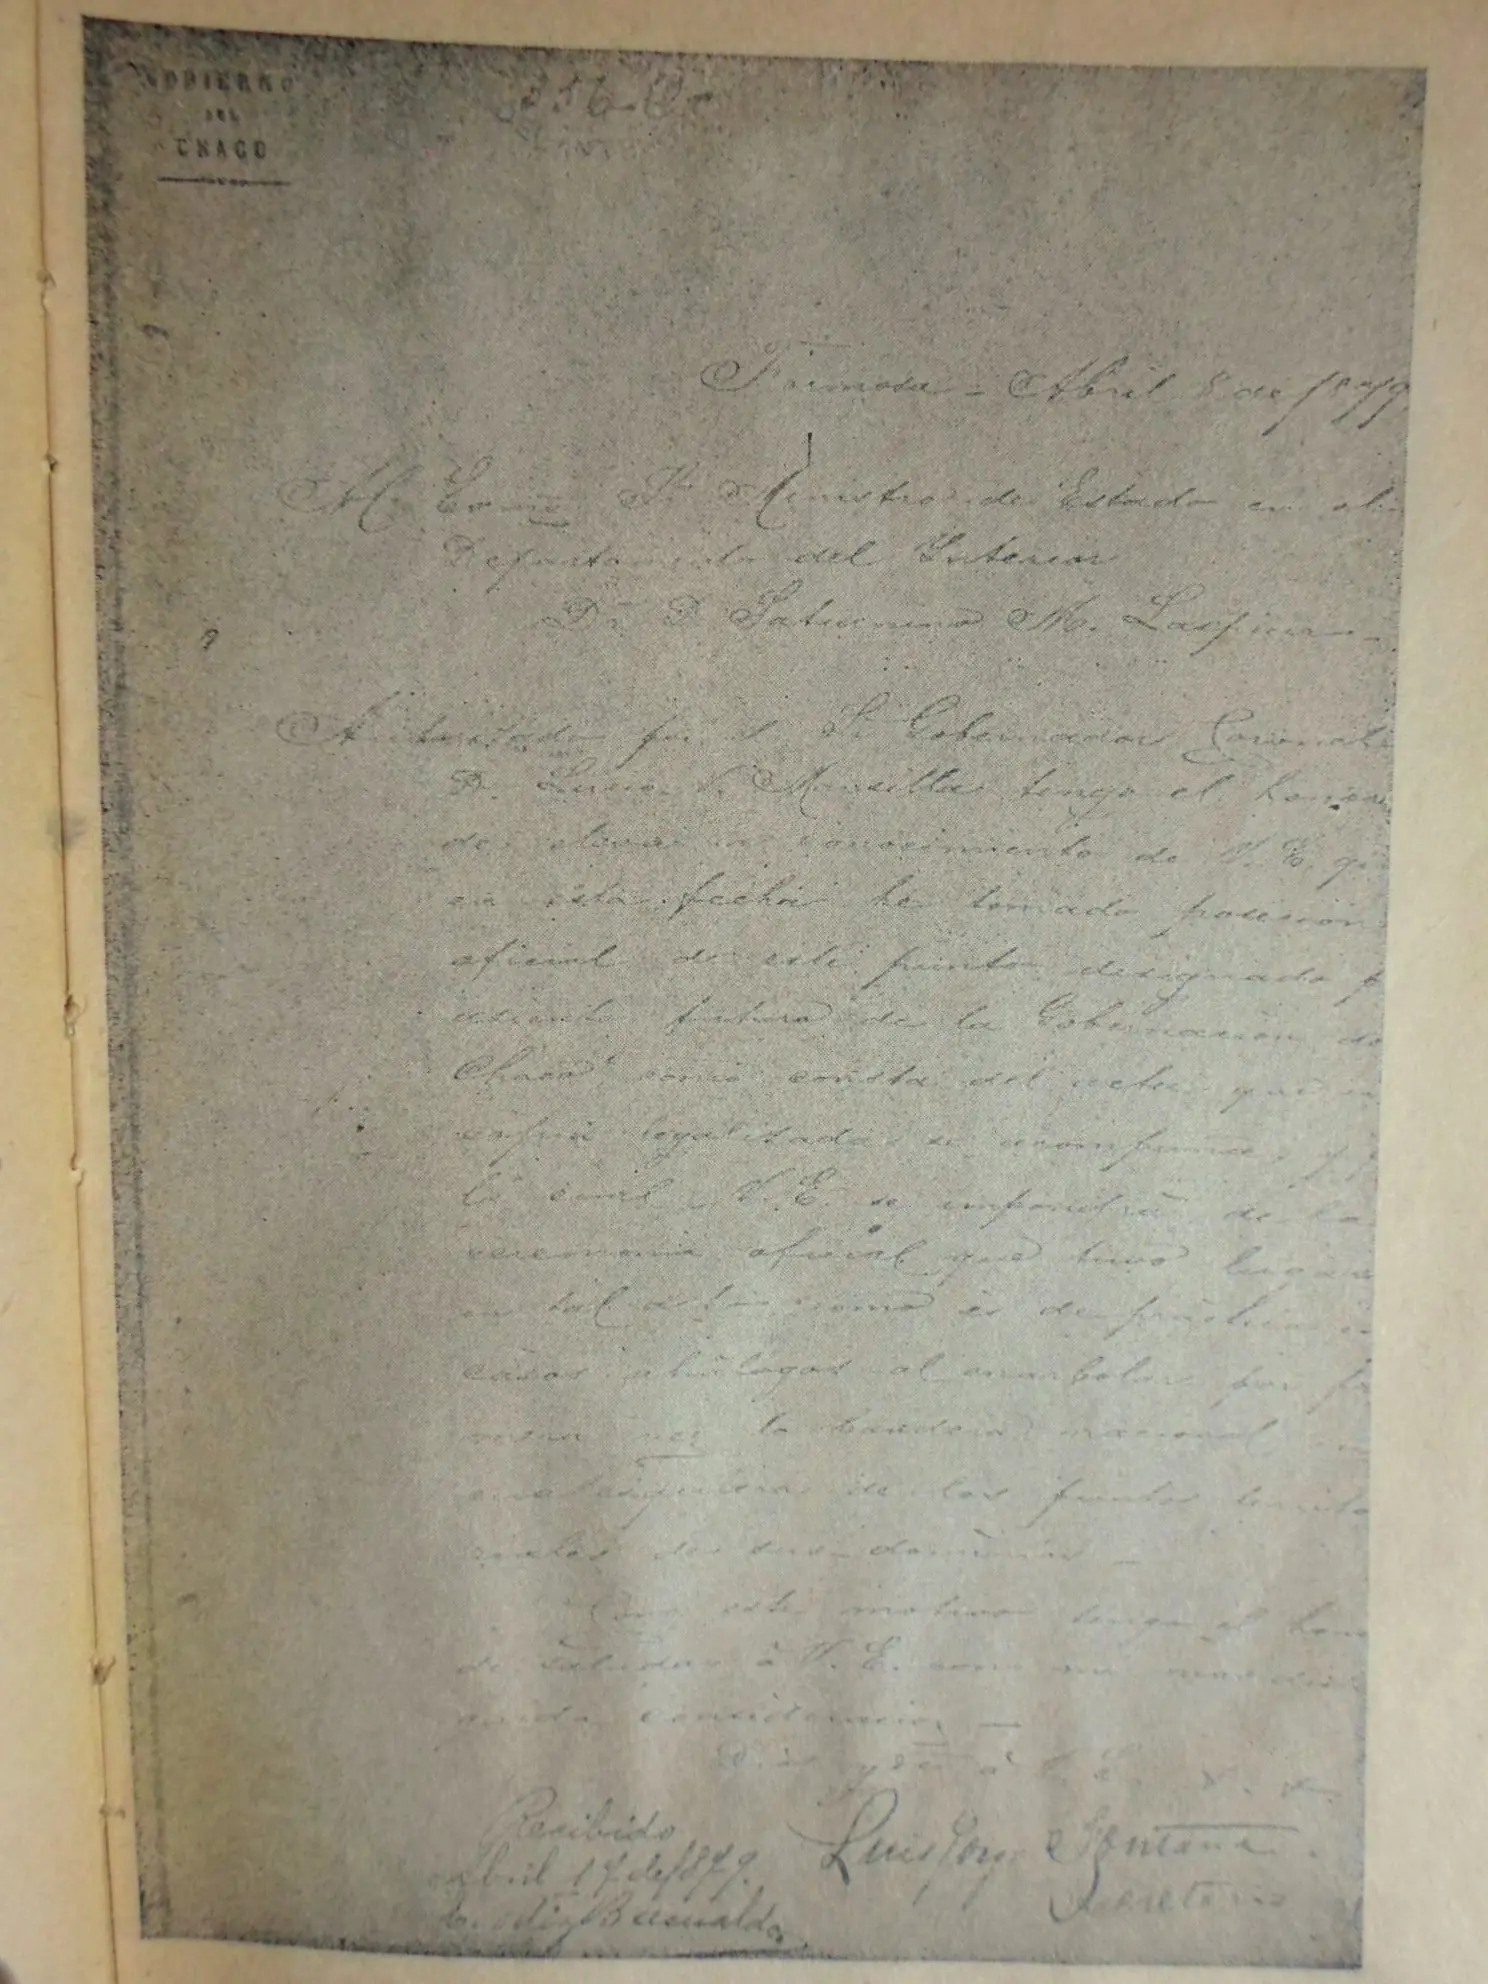 GOBIERNO
DEL
CHACO
Formosa - Abril 8 de 1879
Al Exmo Sr. Ministro de Estado en el
Departamento del Interior
Dr. D. Saturnino M. Laspiur
Autorizado por el Sr. Gobernador Coronel
D. Lucio V. Mansilla tengo el honor
de elevar a conocimiento de V. E. qe
en esta fecha he tomado posesion
oficial de este punto designado p
asiento futuro de la Gobernacion del
Chaco como consta del acta que en
copia legalizada se acompaña, y p
la cual V. E. se impondrá de la
ceremonia oficial que tuvo lugar
en tal acto como es de práctica en
casos análogos al enarbolar por pri
mera vez la bandera nacional en
cualesquiera de los puntos territo
riales de sus dominios -
Con este motivo tengo el hono
de saludar á V. E. con mi mas dist
inguida consideracion -
Dios gde á V. E.
Luis Jorge Fontana
Secretario
Recibido
Abril 17 de 1879.